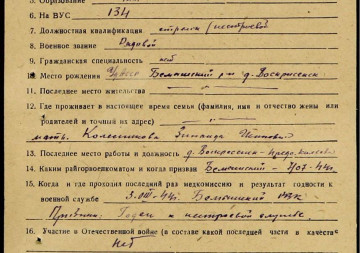 6. На ВУС 134
7. Должностная квалификация стрелок (нестроевой
8. Военное звание Рядовой
9. Гражданская специальность нет
10. Место рождения Бемышский р-н д. Воскресенск
11. Последнее место жительства — " — " —
12. Где проживает в настоящее время семья (фамилия, имя и отчество жены или
родителей и точный их адрес)
мать Колесникова Зинаида
13. Последнее место работы и должность д. Воскресенск
14. Каким райгорвоенкоматом и когда призван
15. Когда и где проходил последний раз медкомиссию и результат годности к
военной службе 44г. РВК
Годен к нестроевой службе
16. Участие в Отечественной войне (в составе какой последней части в качестве
Нет